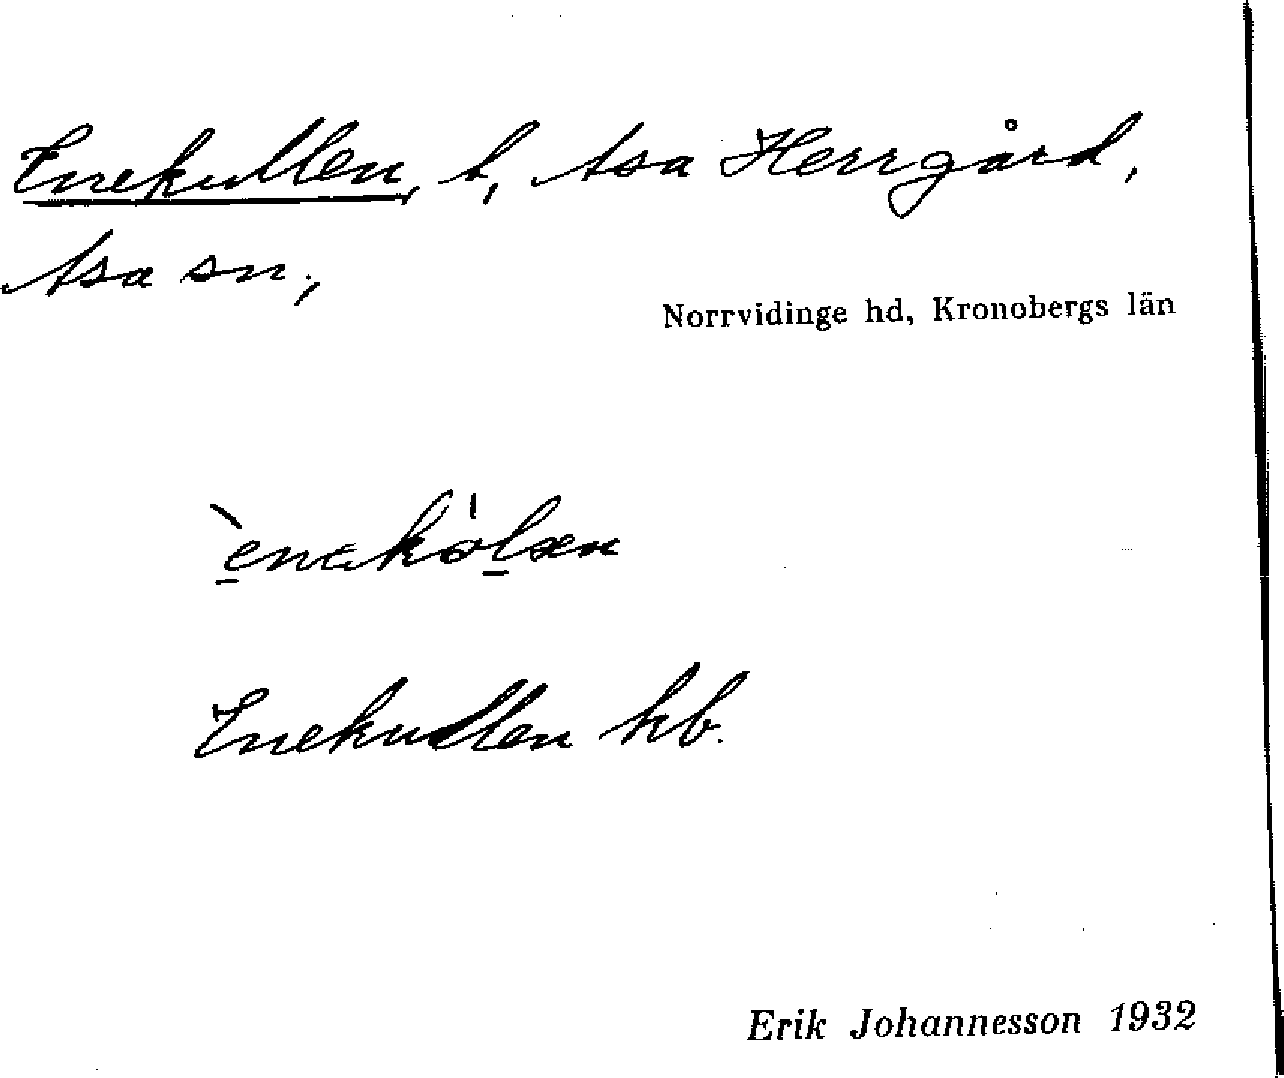 Enekullen, t, Asa Herrgård,
Asa sn.,
Norrvidinge hd, Kronobergs län
Enekullen hb.
Erik Johannesson 1932